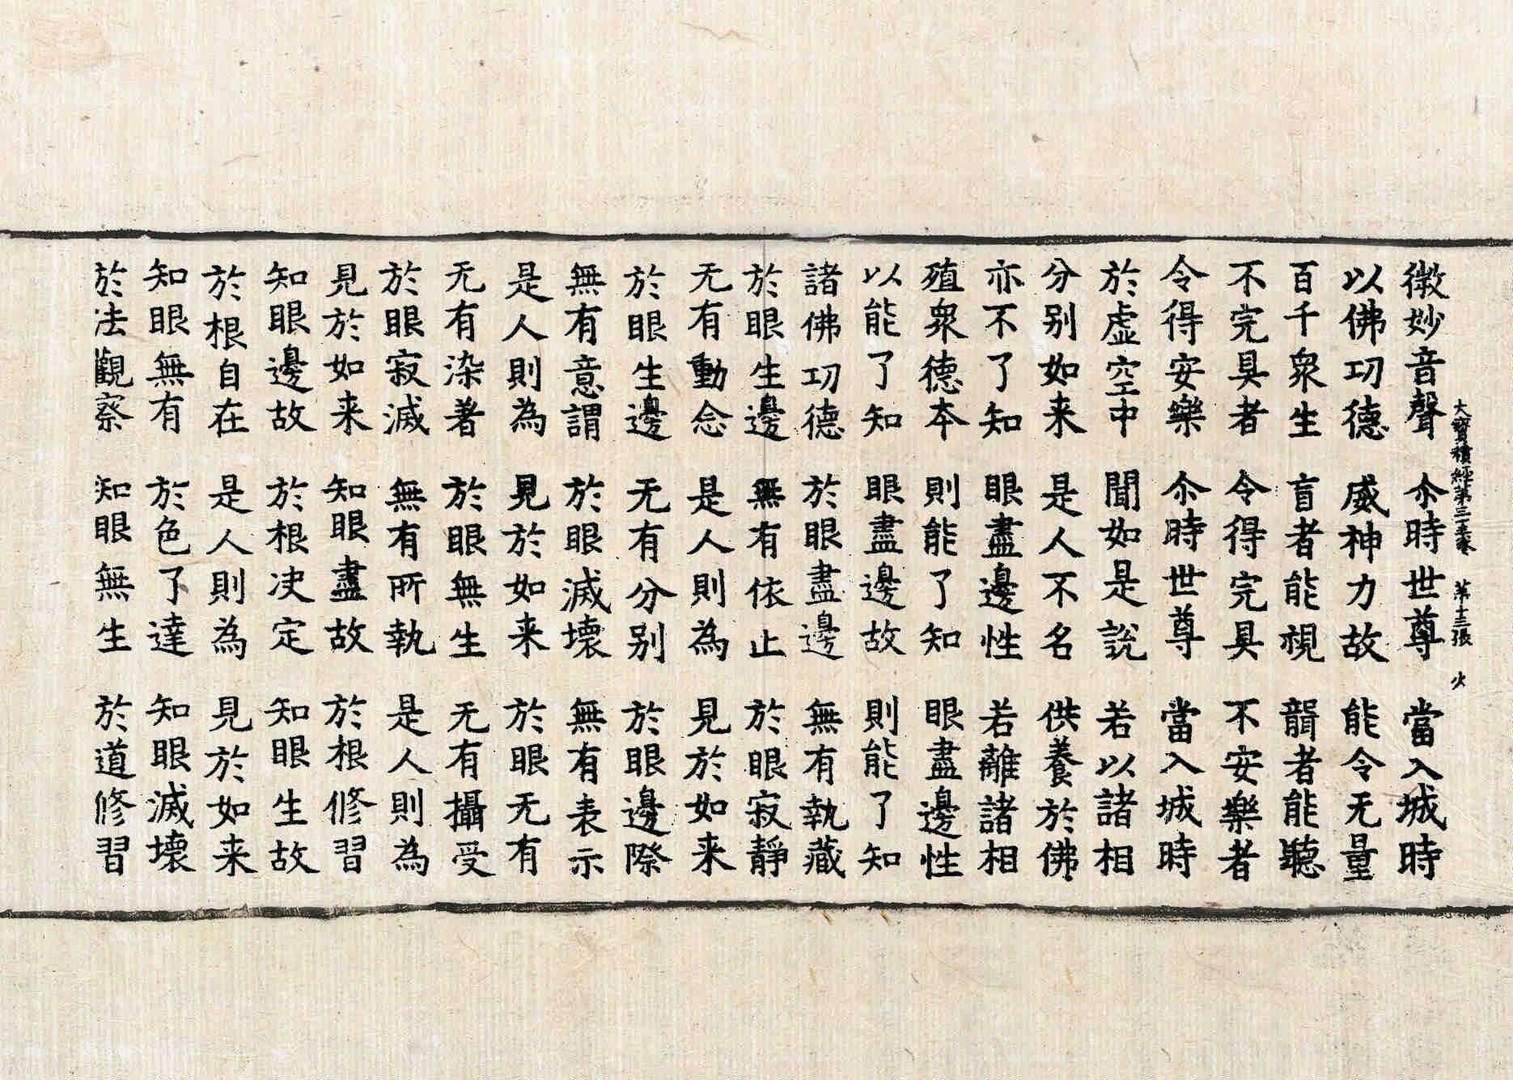 大寶積經第三十五卷 第十三張 火
微妙音聲 尒時世尊 當入城時
以佛功德 威神力故 能令无量
百千衆生 盲者能視 聾者能聽
不完具者 令得完具 不安樂者
令得安樂 尒時世尊 當入城時
於虛空中 聞如是說 若以諸相
分别如来 是人不名 供養於佛
亦不了知 眼盡邊性 若離諸相
殖衆德本 則能了知 眼盡邊性
以能了知 眼盡邊故 則能了知
諸佛功德 於眼盡邊 無有執藏
於眼生邊 無有依止 於眼寂靜
无有動念 是人則為 見於如来
於眼生邊 无有分别 於眼邊際
無有意謂 於眼滅壞 無有表示
是人則為 見於如来 於眼无有
无有染著 於眼無生 无有攝受
於眼寂滅 無有所執 是人則為
見於如来 知眼盡故 於根修習
知眼邊故 於根决定 知眼生故
於根自在 是人則為 見於如来
知眼無有 於色了達 知眼滅壞
於法觀察 知眼無生 於道修習